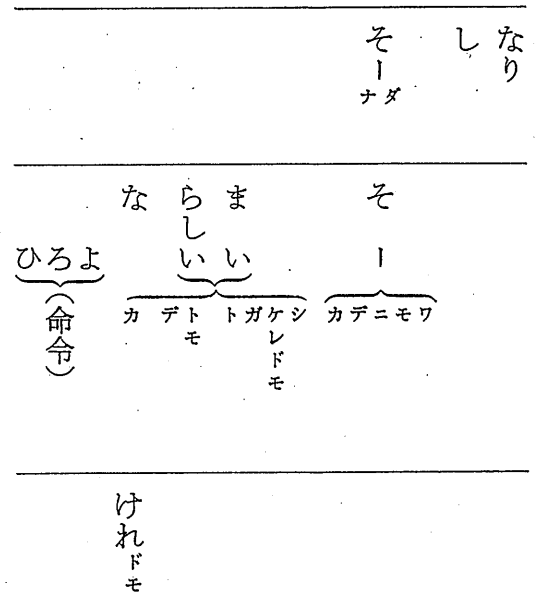 なり
し
そー ダ
ナ
そー
ワ
モ
ニ
デ
カ
まい
らしい
な
シ
ケレドモ
ガ
ト
トモ
デ
カ
よ
ろ
ひ
(命令)
けれドモ